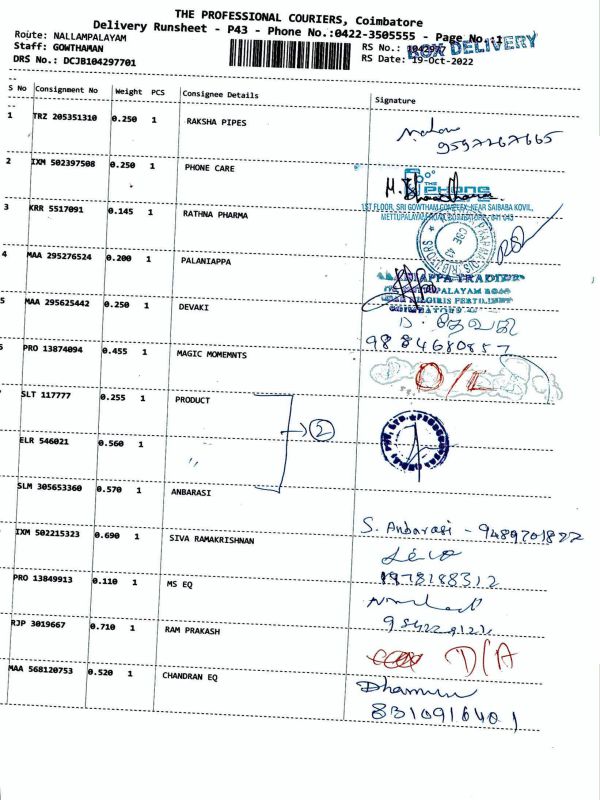 THE PROFESSIONAL COURIERS, Coimbatore
Delivery Runsheet - P43 - Phone No.:0422-3505555 - Page No.:1
Route: NALLAMPALAYAM
RS No.: 1042977
BOX DELIVERY
Staff: GOWTHAMAN
RS Date: 19-Oct-2022
DRS No.: DCJB104297701
S No Consignment No Weight PCS Consignee Details Signature
1 TRZ 205351310 0.250 1 RAKSHA PIPES
9597267665
2 IXM 502397508 0.250 1 PHONE CARE
THE
1ST FLOOR, SRI GOWTHAM COMPLEX, NEAR SAIBABA KOVIL,
3 KRR 5517091 0.145 1 RATHNA PHARMA
4 MAA 295276524 0.200 1 PALANIAPPA
5 MAA 295625442 0.250 1 DEVAKI
D. தேவகி
9884680857
PRO 13874094 0.455 1 MAGIC MOMEMNTS
O/L
SLT 117777 0.255 1 PRODUCT
2
ELR 546021 0.560 1 ,,
SLM 305653360 0.570 1 ANBARASI
S. Anbarasi - 9489701822
IXM 502215323 0.690 1 SIVA RAMAKRISHNAN
PRO 13849913 0.110 1 MS EQ
RJP 3019667 0.710 1 RAM PRAKASH
D/A
MAA 568120753 0.520 1 CHANDRAN EQ
8310916401